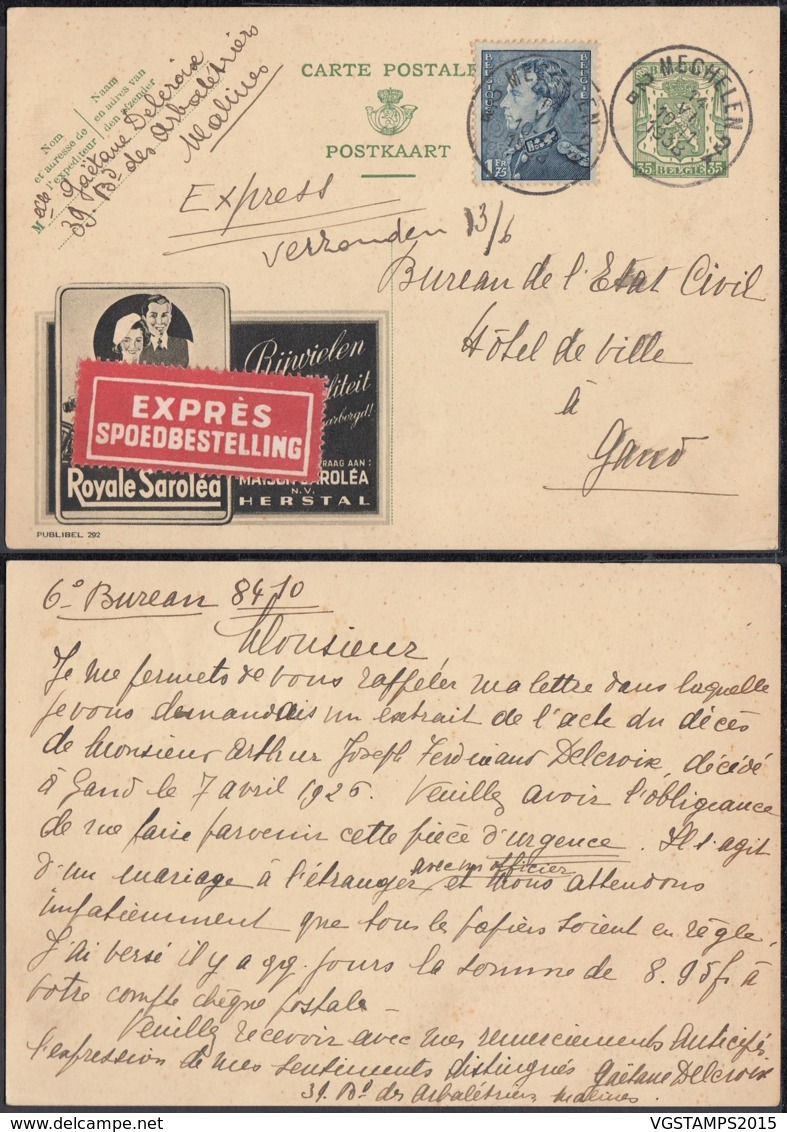 Nom
et adresse de
l'expéditeur
Naam
en adres van
den afzender
M elle Gaëtane Delcroix
39. Bd des Arbalétriers
Malines
CARTE POSTALE
POSTKAART
BELGIQUE
BELGIË
1 FR 75
MECHELEN
MECHELEN 2
1938
35 BELGIË 35
Express
verzonden 13/6
Bureau de l'Etat Civil
Hôtel de ville
à
Gand
Rijwielen
EXPRÈS
SPOEDBESTELLING
Royale Saroléa
RAAG AAN :
MAISON SAROLÉA
N.V.
HERSTAL
PUBLIBEL 292
6° Bureau 8410
Monsieur
Je me permets de vous rappeler ma lettre dans laquelle
je vous demandais un extrait de l'acte du décès
de Monsieur Arthur Joseph Ferdinand Delcroix, décédé
à Gand le 7 avril 1926. Veuillez avoir l'obligeance
de me faire parvenir cette pièce d'urgence. Il s'agit
d'un mariage à l'étranger avec un officier et nous attendons
impatiemment que tous les papiers soient en règle.
J'ai versé il y a qq. jours la somme de 8.95 f. à
votre compte chèque postale –
Veuillez recevoir avec mes remerciements anticipés
l'expression de mes sentiments distingués Gaëtane Delcroix
39. Bd des Arbalétriers Malines.
VGSTAMPS2015